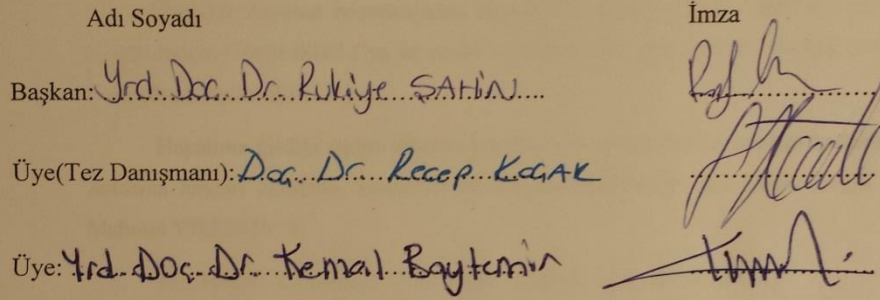 Adı Soyadı İmza
Başkan: Yrd. Doç. Dr. Rukiye ŞAHİN
Üye(Tez Danışmanı): Doç. Dr. Recep KOÇAK
Üye: Yrd. Doç. Dr. Kemal Baytemir